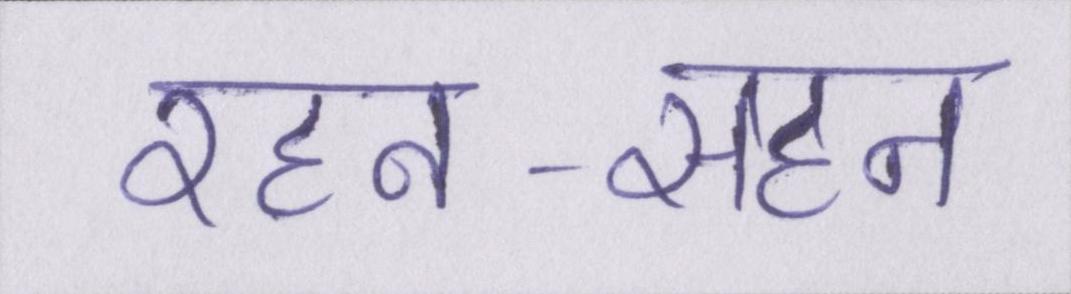 रहन-सहन